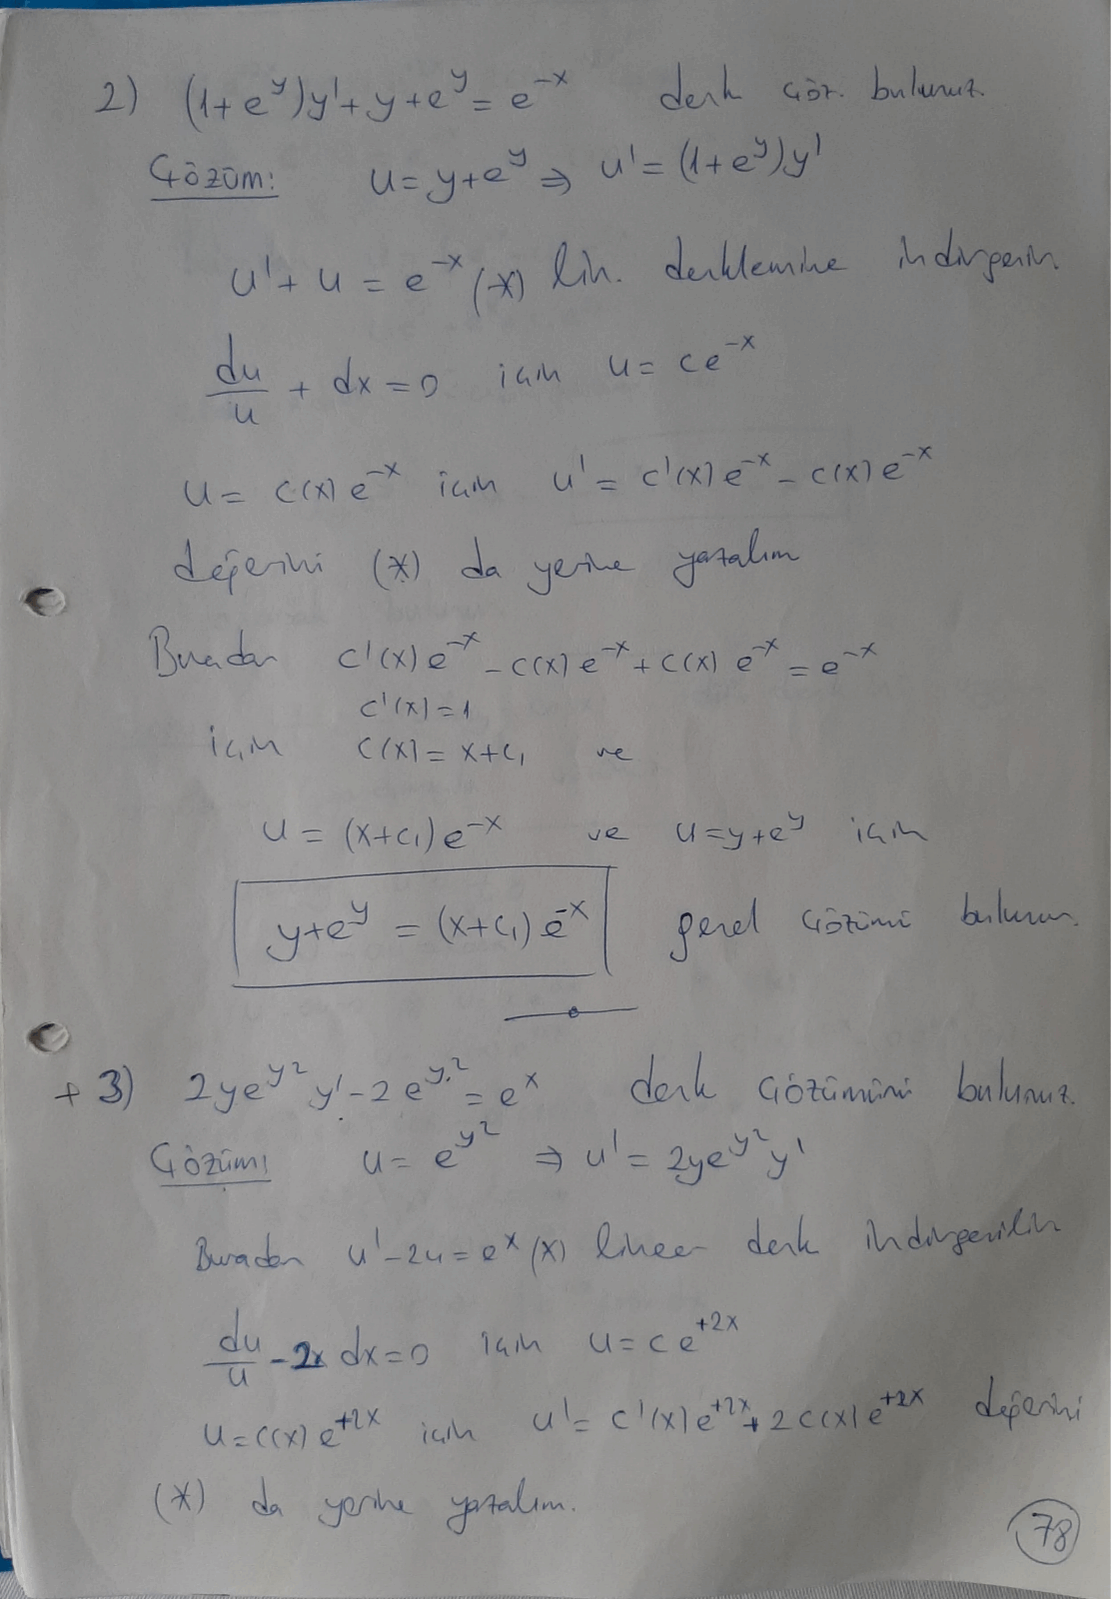 2) (1+e^y)y'+y+e^y = e^-x denk çöz. bulunuz.
Çözüm: u=y+e^y ⇒ u'=(1+e^y)y'
u'+u = e^-x (*) lin. denklemine indirgenir.
du/u + dx=0 için u=ce^-x
u= c(x)e^-x için u'= c'(x)e^-x - c(x)e^-x
değerini (*) da yerine yazalım
Buradan c'(x)e^-x - c(x)e^-x + c(x)e^-x = e^-x
c'(x)=1
için c(x)=x+c₁ ve
u = (x+c₁)e^-x ve u=y+e^y için
y+e^y = (x+c₁)e^-x genel çözümü bulunur.
+ 3) 2ye^y² y'-2e^y² = e^x denk çözümünü bulunuz.
Çözüm: u= e^y² ⇒ u'= 2ye^y² y'
Buradan u'-2u=e^x (*) lineer denk indirgenilir
du/u - 2 dx=0 için u=ce^+2x
u=c(x)e^+2x için u'= c'(x)e^+2x + 2c(x)e^+2x değerini
(*) da yerine yazalım.
78